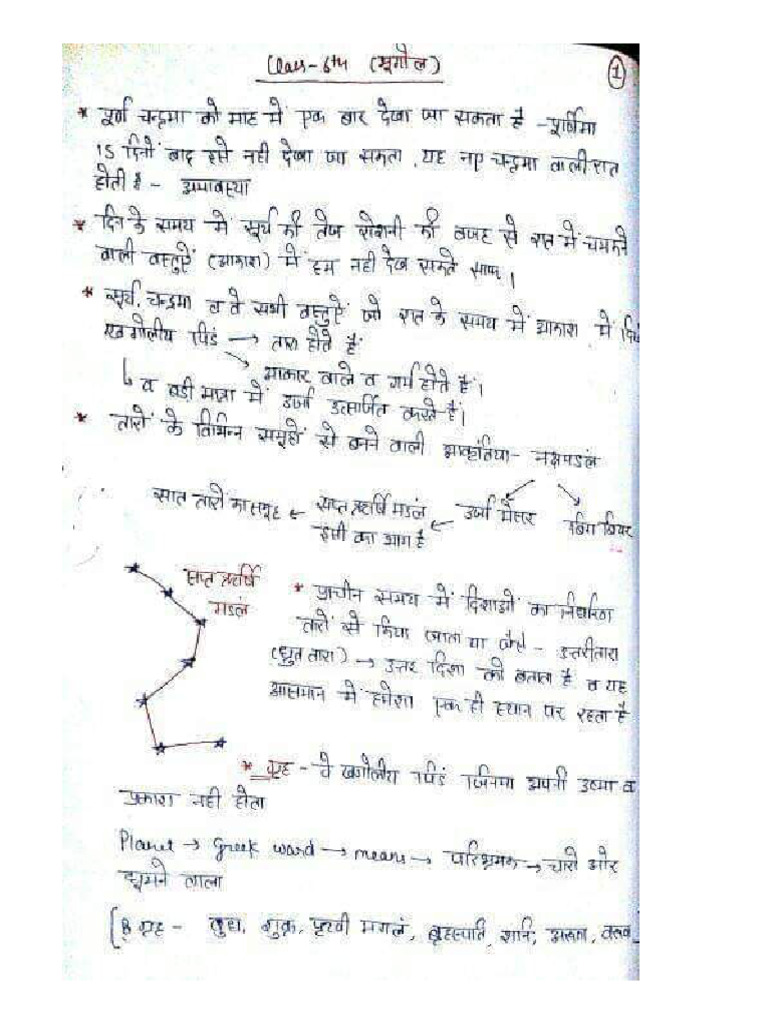 Class-6th (भूगोल)
1
* पूर्ण चन्द्रमा को माह में एक बार देखा जा सकता है -पूर्णिमा
15 दिनों बाद इसे नही देखा जा सकता, यह नए चन्द्रमा वाली रात
होती है - अमावस्या
* दिन के समय में सूर्य की तेज रोशनी की वजह से रात में चमकने
वाली वस्तुऐं (आकाश) में हम नही देख सकते
* सूर्य, चन्द्रमा व वे सभी वस्तुऐं जो रात के समय में आकाश में
खगोलीय पिंड → तारा होते हैं
आकार वाले व गर्म होते हैं।
व बडी मात्रा में उर्जा उत्सर्जित करते हैं।
* तारों के विभिन्न समूहों से बनने वाली आकृतिया-
सात तारो का समूह ← सप्त ऋषि मडलं ← उर्सा मैसर बिग बियर
इसी का भाग है
सप्त ऋषि
मडलं
* प्राचीन समय में दिशाओं का निर्धारण
तारों से किया जाता था जैसे - उत्तरीतारा
(ध्रुव तारा) → उत्तर दिशा को बताता है व यह
आसमान में हमेशा एक ही स्थान पर रहता है
* ग्रह - वे खगोलीय पिंड जिनमा अपनी उष्मा व
प्रकाश नही होता
Planet → Greek word → means → परिभ्रमक → चारो और
घूमने वाला
[8 ग्रह - बुध, शुक्र, पृथ्वी मगलं, बृहस्पति, शनि, अरुण, वरुण